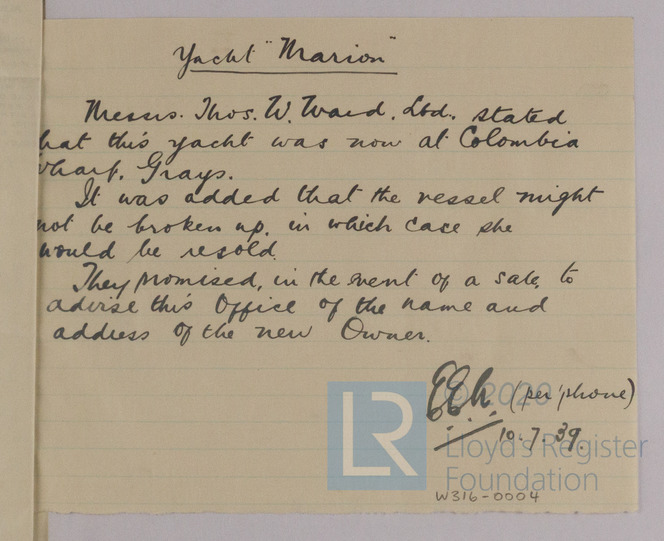 Yacht "Marion"
Messrs. Thos. W. Ward. Ltd. stated
hat this yacht was now at Colombia
wharf. Grays.
It was added that the vessel might
not be broken up, in which case she
would be resold.
They promised, in the event of a sale, to
advise this Office of the name and
address of the new Owner.
(per 'phone)
10.7.39.
LR
© 2020
Lloyd's Register
Foundation
W316-0004